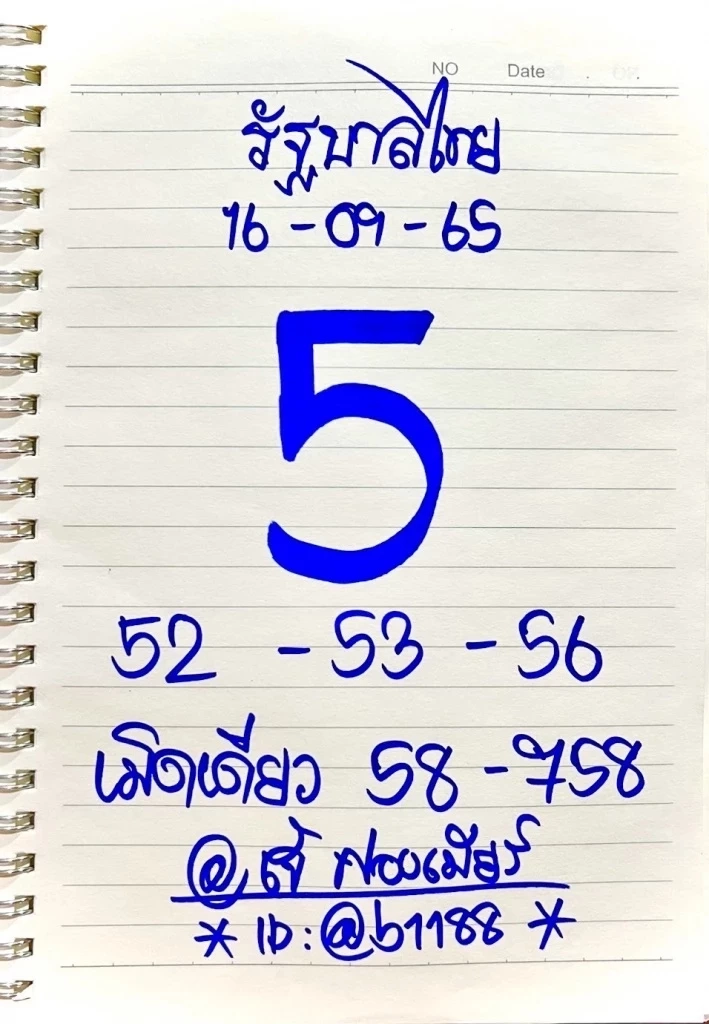 NO Date
รัฐบาลไทย
16 - 09 - 65
5
52 - 53 - 56
เม็ดเดียว 58 - 758
@ เจ๊ ฟองเบียร์
* ID: @b1188 *